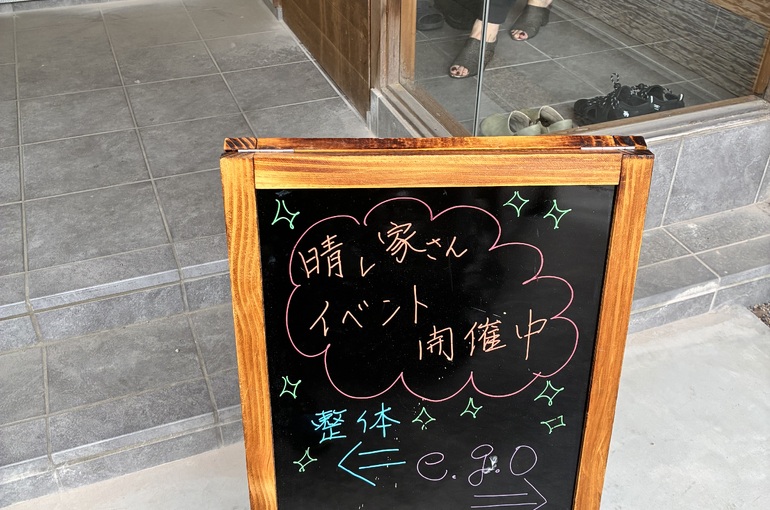 晴レ家さん
イベント
開催中
整体
⇐ e.g.o
⇒